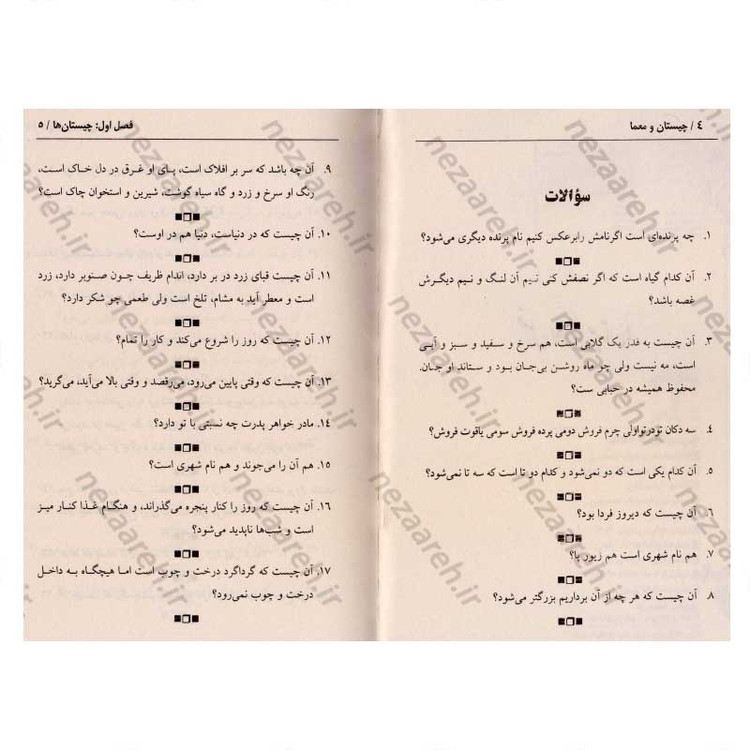 ٤ / چیستان و معما
سؤالات
۱. چه پرنده‌ای است اگرنامش رابرعکس کنیم نام پرنده دیگری می‌شود؟
۲. آن کدام گیاه است که اگر نصفش کنی نیم آن لنگ و نیم دیگرش
غصه باشد؟
۳. آن چیست به قدر یک گلابی است، هم سرخ و سفید و سبز و آبی
است، مه نیست ولی چو ماه روشن بی‌جان بود و ستاند او جان.
محفوظ همیشه در حبابی ست؟
۴. سه دکان تودرتواولی چرم فروش دومی پرده فروش سومی یاقوت فروش؟
۵. آن کدام یکی است که دو نمی‌شود و کدام دو تا است که سه تا نمی‌شود؟
۶. آن چیست که دیروز فردا بود؟
۷. هم نام شهری است هم زیور پا؟
۸. آن چیست که هر چه از آن برداریم بزرگتر می‌شود؟
فصل اول: چیستان‌ها / ۵
۹. آن چه باشد که سر بر افلاک است، پای او غرق در دل خاک است،
رنگ او سرخ و زرد و گاه سیاه گوشت، شیرین و استخوان چاک است؟
۱۰. آن چیست که در دنیاست، دنیا هم در اوست؟
۱۱. آن چیست قبای زرد در بر دارد، اندام ظریف چون صنوبر دارد، زرد
است و معطر آید به مشام، تلخ است ولی طعمی چو شکر دارد؟
۱۲. آن چیست که روز را شروع می‌کند و کار را تمام؟
۱۳. آن چیست که وقتی پایین می‌رود، می‌رقصد و وقتی بالا می‌آید، می‌گرید؟
۱۴. مادر خواهر پدرت چه نسبتی با تو دارد؟
۱۵. هم آن را می‌جوند و هم نام شهری است؟
۱۶. آن چیست که روز را کنار پنجره می‌گذراند، و هنگام غذا کنار میز
است و شب‌ها ناپدید می‌شود؟
۱۷. آن چیست که گرداگرد درخت و چوب است اما هیچگاه به داخل
درخت و چوب نمی‌رود؟
nezaareh.ir